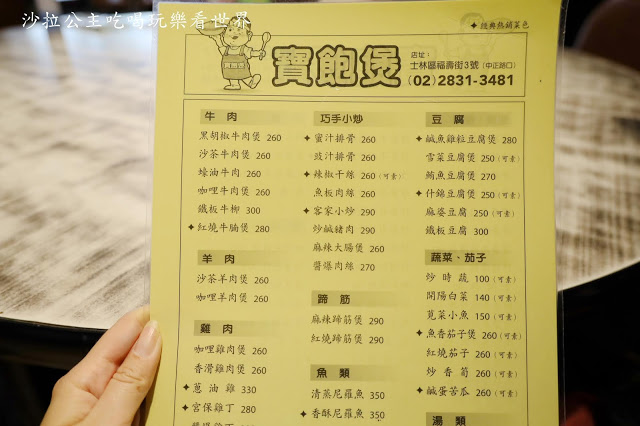 沙拉公主吃喝玩樂看世界
✦經典熱銷菜色
寶飽煲
店址：
士林區福壽街3號（中正路口）
(02)2831-3481
牛 肉
黑胡椒牛肉煲 260
沙茶牛肉煲 260
蠔油牛肉 260
咖哩牛肉煲 260
鐵板牛柳 300
✦紅燒牛腩煲 280
羊 肉
沙茶羊肉煲 260
咖哩羊肉煲 260
雞 肉
咖哩雞肉煲 260
香滑雞肉煲 260
✦蔥油雞 330
✦宮保雞丁 280
巧手小炒
✦蜜汁排骨 260
豉汁排骨 260
✦辣椒干絲 260（可素）
魚板肉絲 260
✦客家小炒 290
炒鹹豬肉 290
麻辣大腸煲 260
醬爆肉絲 270
蹄 筋
麻辣蹄筋煲 290
紅燒蹄筋煲 290
魚 類
清蒸尼羅魚 350
✦香酥尼羅魚 350
豆 腐
✦鹹魚雞粒豆腐煲 280
雪菜豆腐煲 250（可素）
鮪魚豆腐煲 270
✦什錦豆腐煲 250（可素）
麻婆豆腐 250（可素）
鐵板豆腐 300
蔬菜、茄子
炒時蔬 100（可素）
開陽白菜 140（可素）
莧菜小魚 150（可素）
✦魚香茄子煲 260（可素）
紅燒茄子 260（可素）
炒香菇 260（可素）
✦鹹蛋苦瓜 260（可素）
湯 類